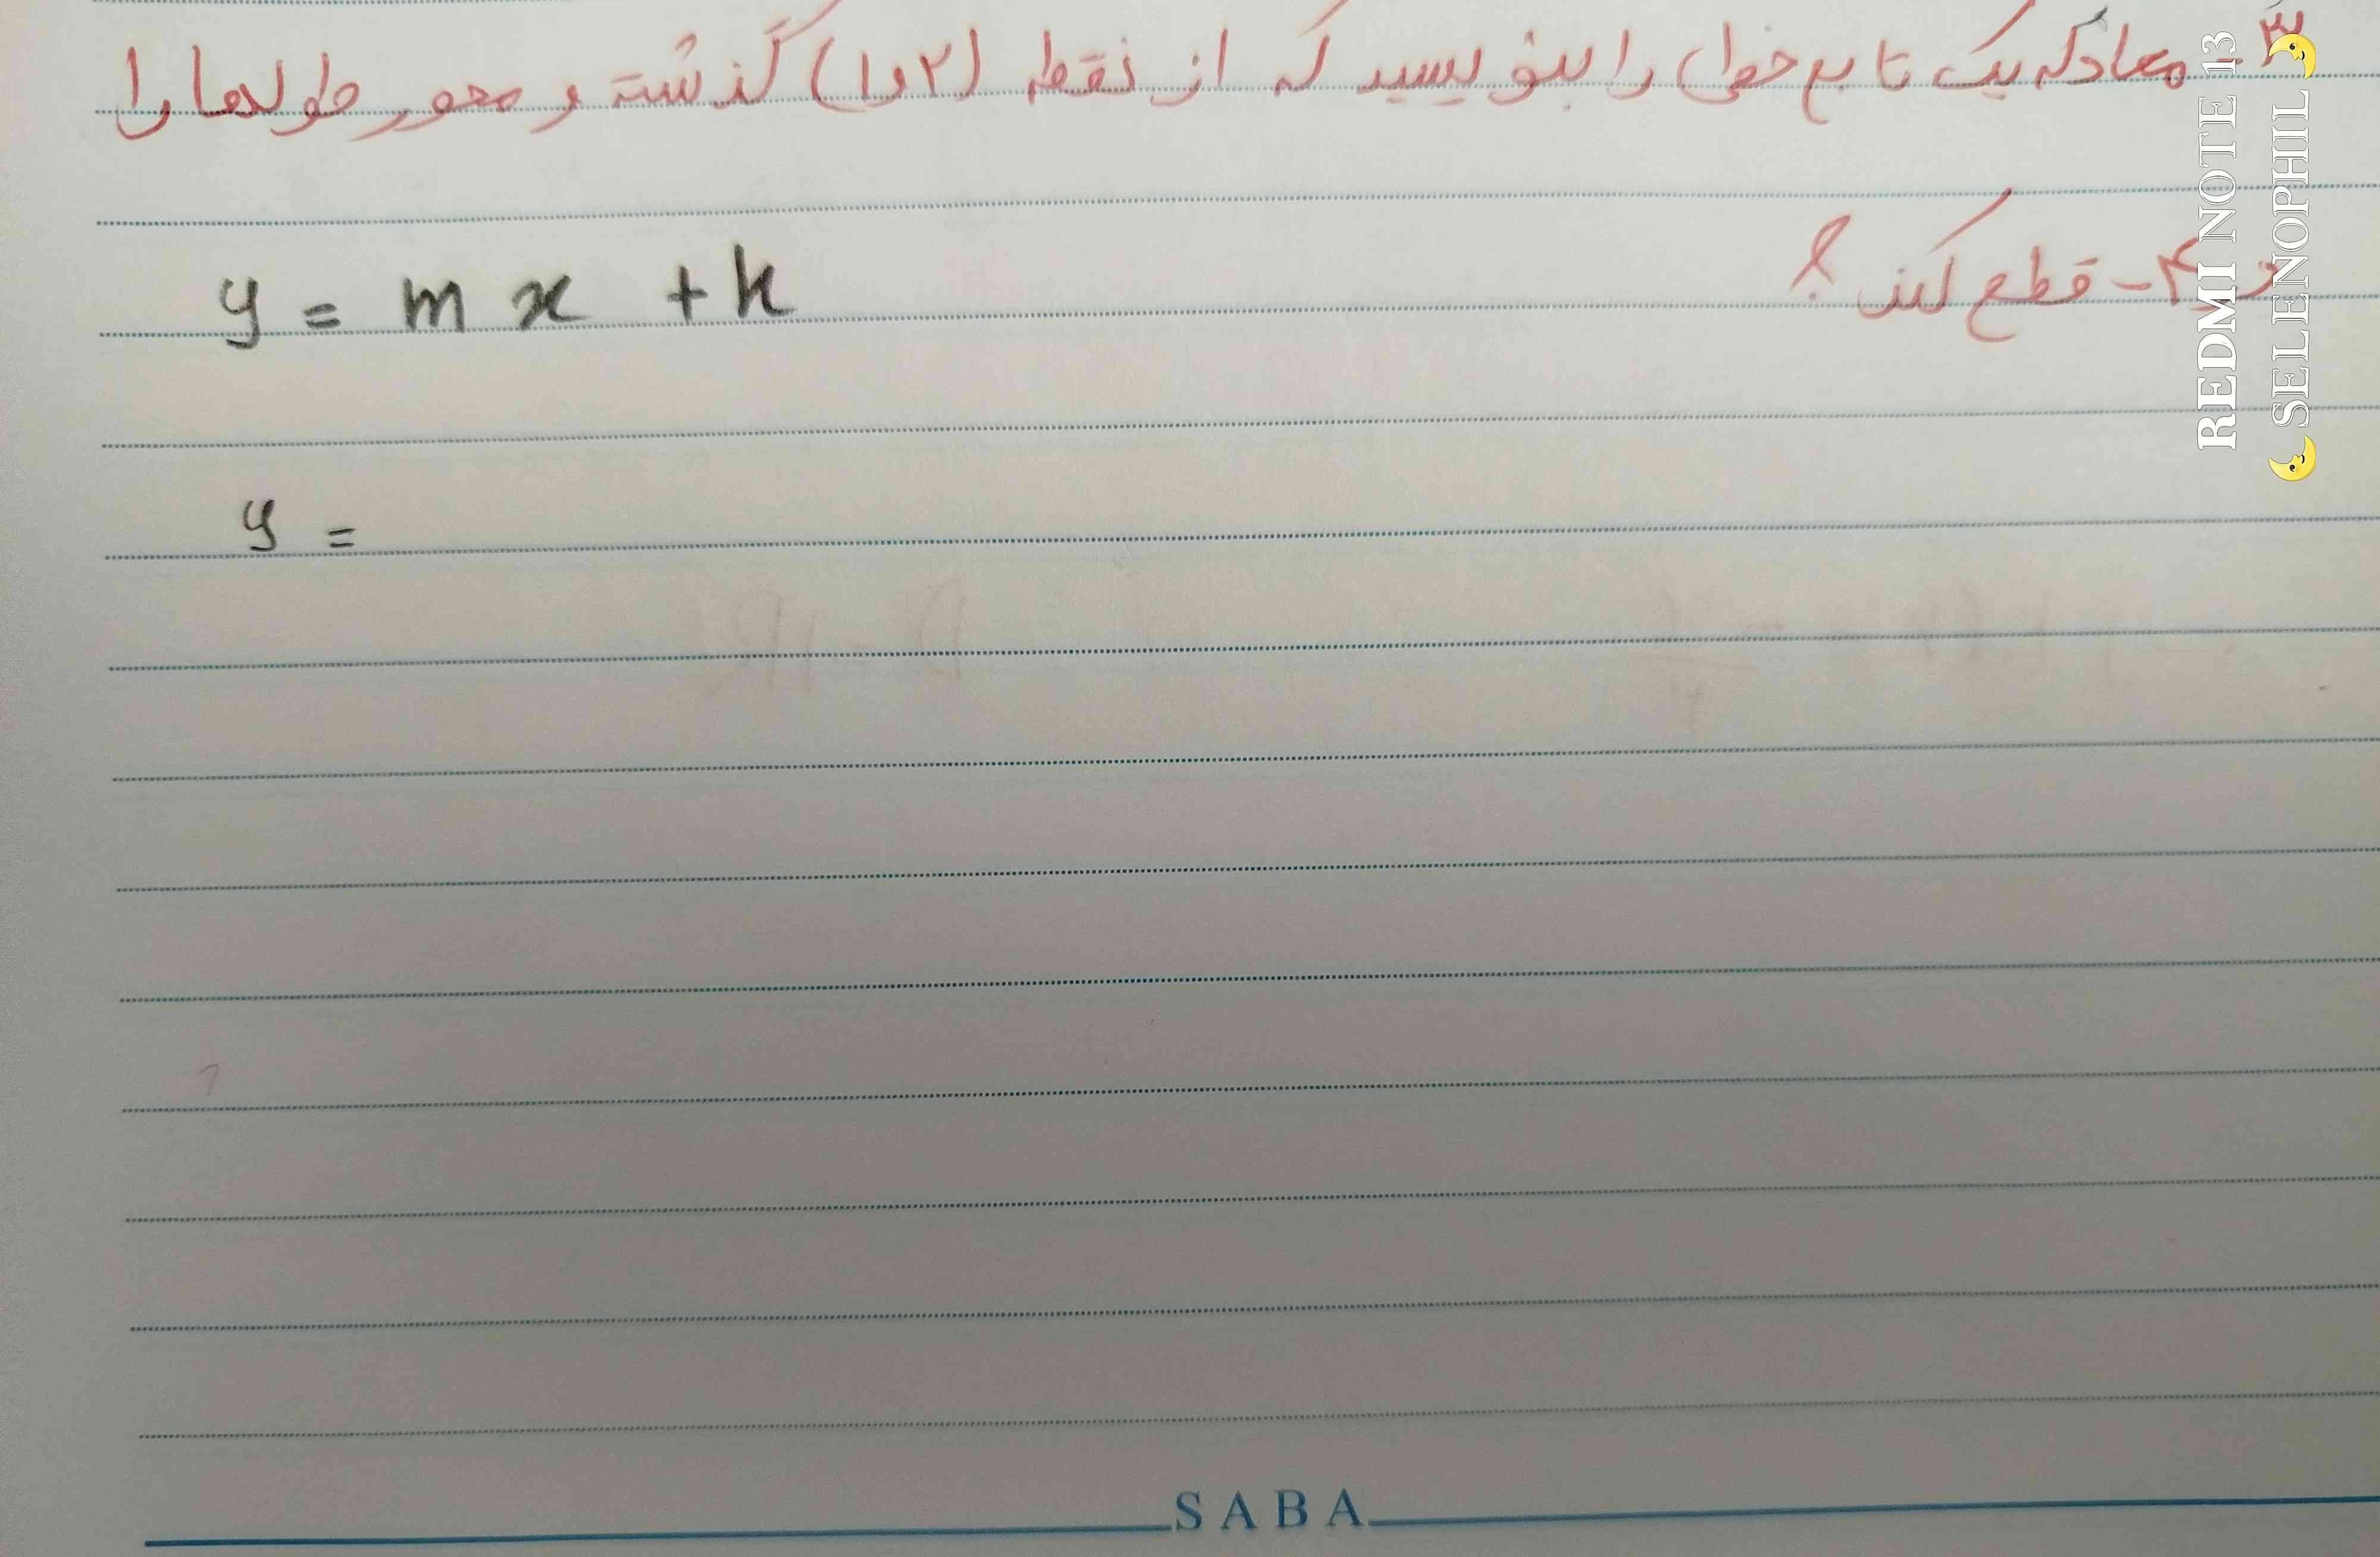 ۳- معادله یک تابع خطی را بنویسید که از نقطه (۲و۱) گذشته و محور طولها را
در ۴- قطع کند؟
y = mx + k
y =
SABA
REDMI NOTE 13
🌜SELENOPHIL🌛